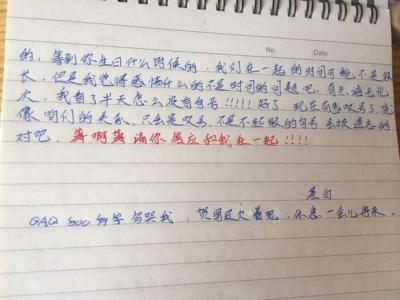 No. Date
的，等到你生日什么时候的，我们在一起的时间可能不是很
长，但是我觉得感情什么的不是时间的问题吧，有点语无伦
次，我看了半天怎么没有句号!!!!!好了，现在句感叹号了，就
像咱们的关系，只会是叹号，不是不起眼的句号会被遗忘的
对吧。薄啊薄 请你答应和我在一起!!!!
QAQ 800的字写哭我，哭
休息一会儿再来。